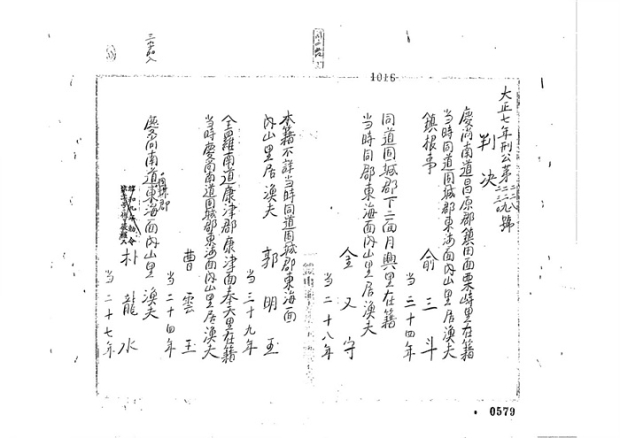 1016
大正七年刑公第二二八二二九號
判決
慶尚南道昌原郡鎮田面栗峙里在籍
当時同道固城郡東海面內山里居漁夫
鎮根事 俞三斗
当三十四年
同道固城郡下二面月興里在籍
当時同郡東海面內山里居漁夫
金又守
当二十八年
本籍不詳当時同道固城郡東海面
內山里居漁夫 郭明玉
当三十九年
全羅南道康津郡康津面奉天里在籍
当時慶尚南道固城郡東海面內山里居漁夫
曹雲玉
当二十四年
慶尚南道固城郡東海面內山里 漁夫
朴龍水
当二十七年
0579